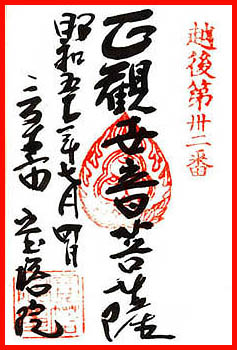 越後第卅二番
正觀世音菩薩
昭和五十一年七月四日
宝塔院